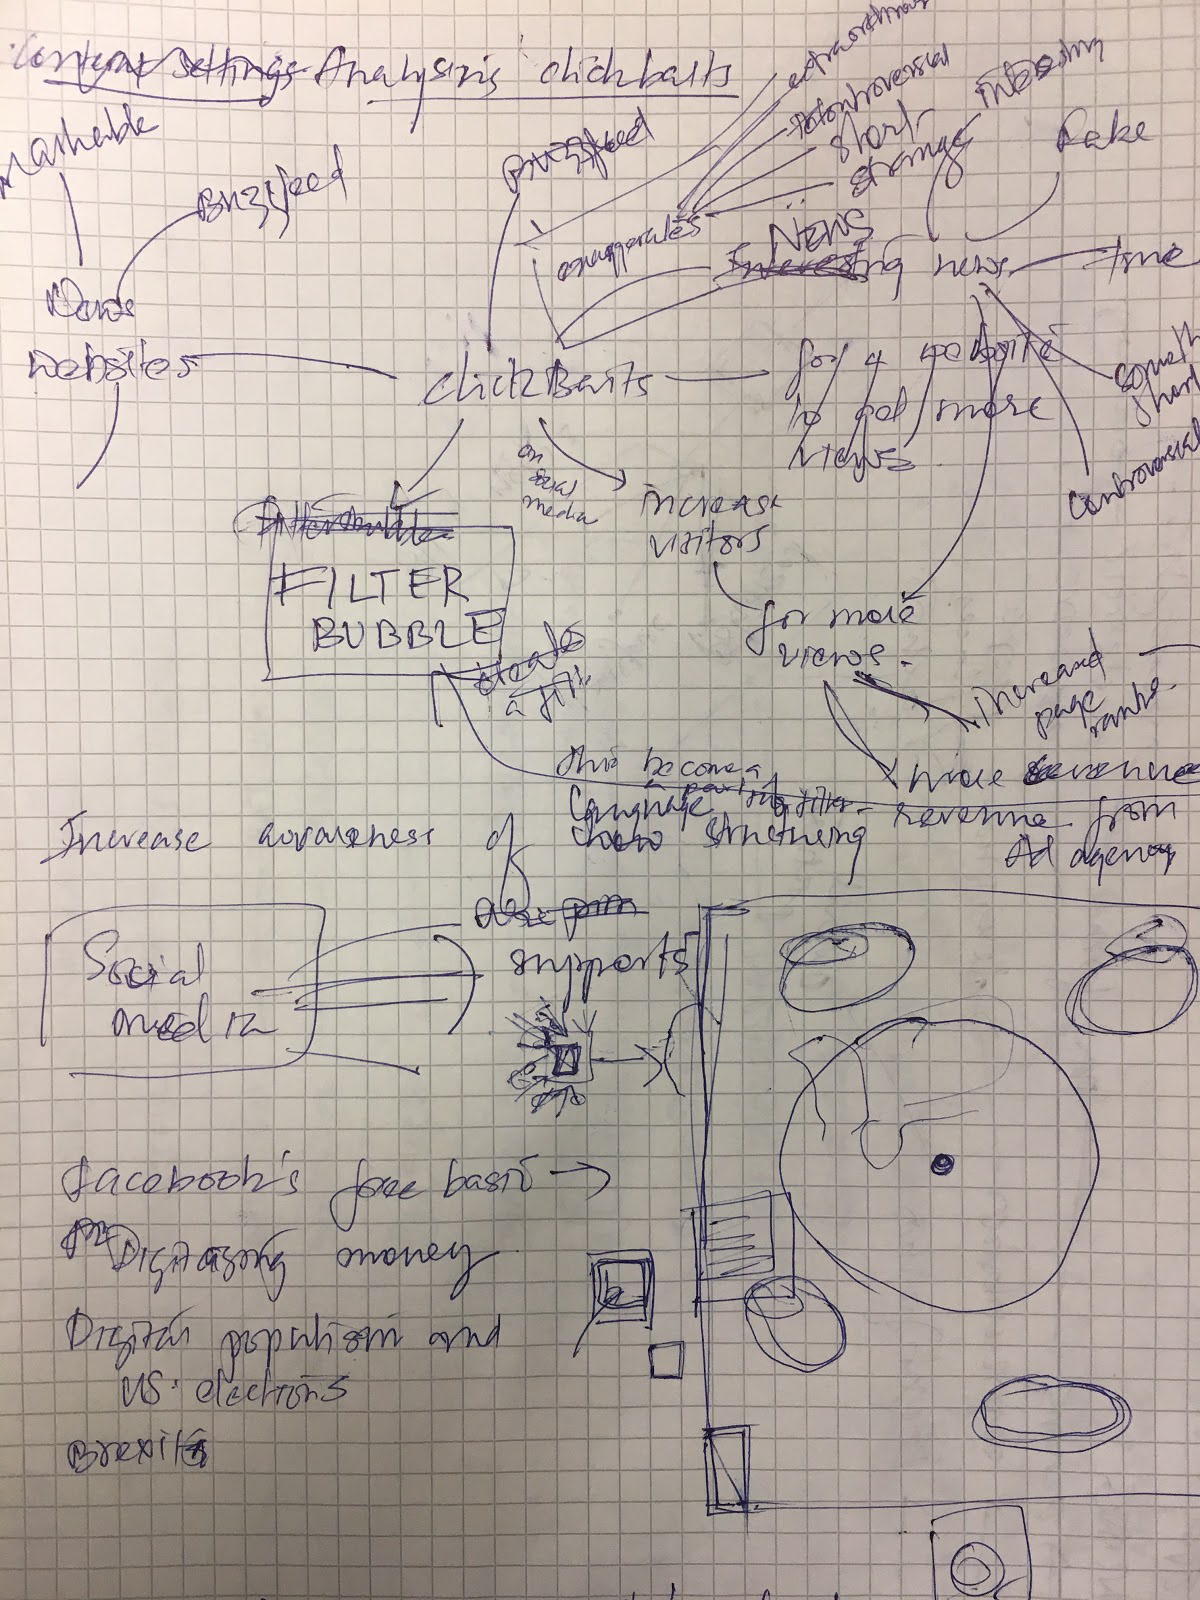 Context Settings - Analysizis clickbaits
Mashable
Buzzfeed
Buzzfeed
extraordinary
controversial
short
strange
interesting
Fake
exaggerates
NEWS
Interesting news
time
News
websites
clickBaits
for a website
to get more
views
something
short
controversial
on
social
media
increase
visitors
FILTER
BUBBLE
creates
a filt
for more
views.
increased
page
ranks.
more revenue
revenue from
Ad agency
this become a
a part of
language
structuring
Increase awareness of
Social
media
supports
Facebook's free basic
Digitazing money
Digital populism and
US. elections
Brexit